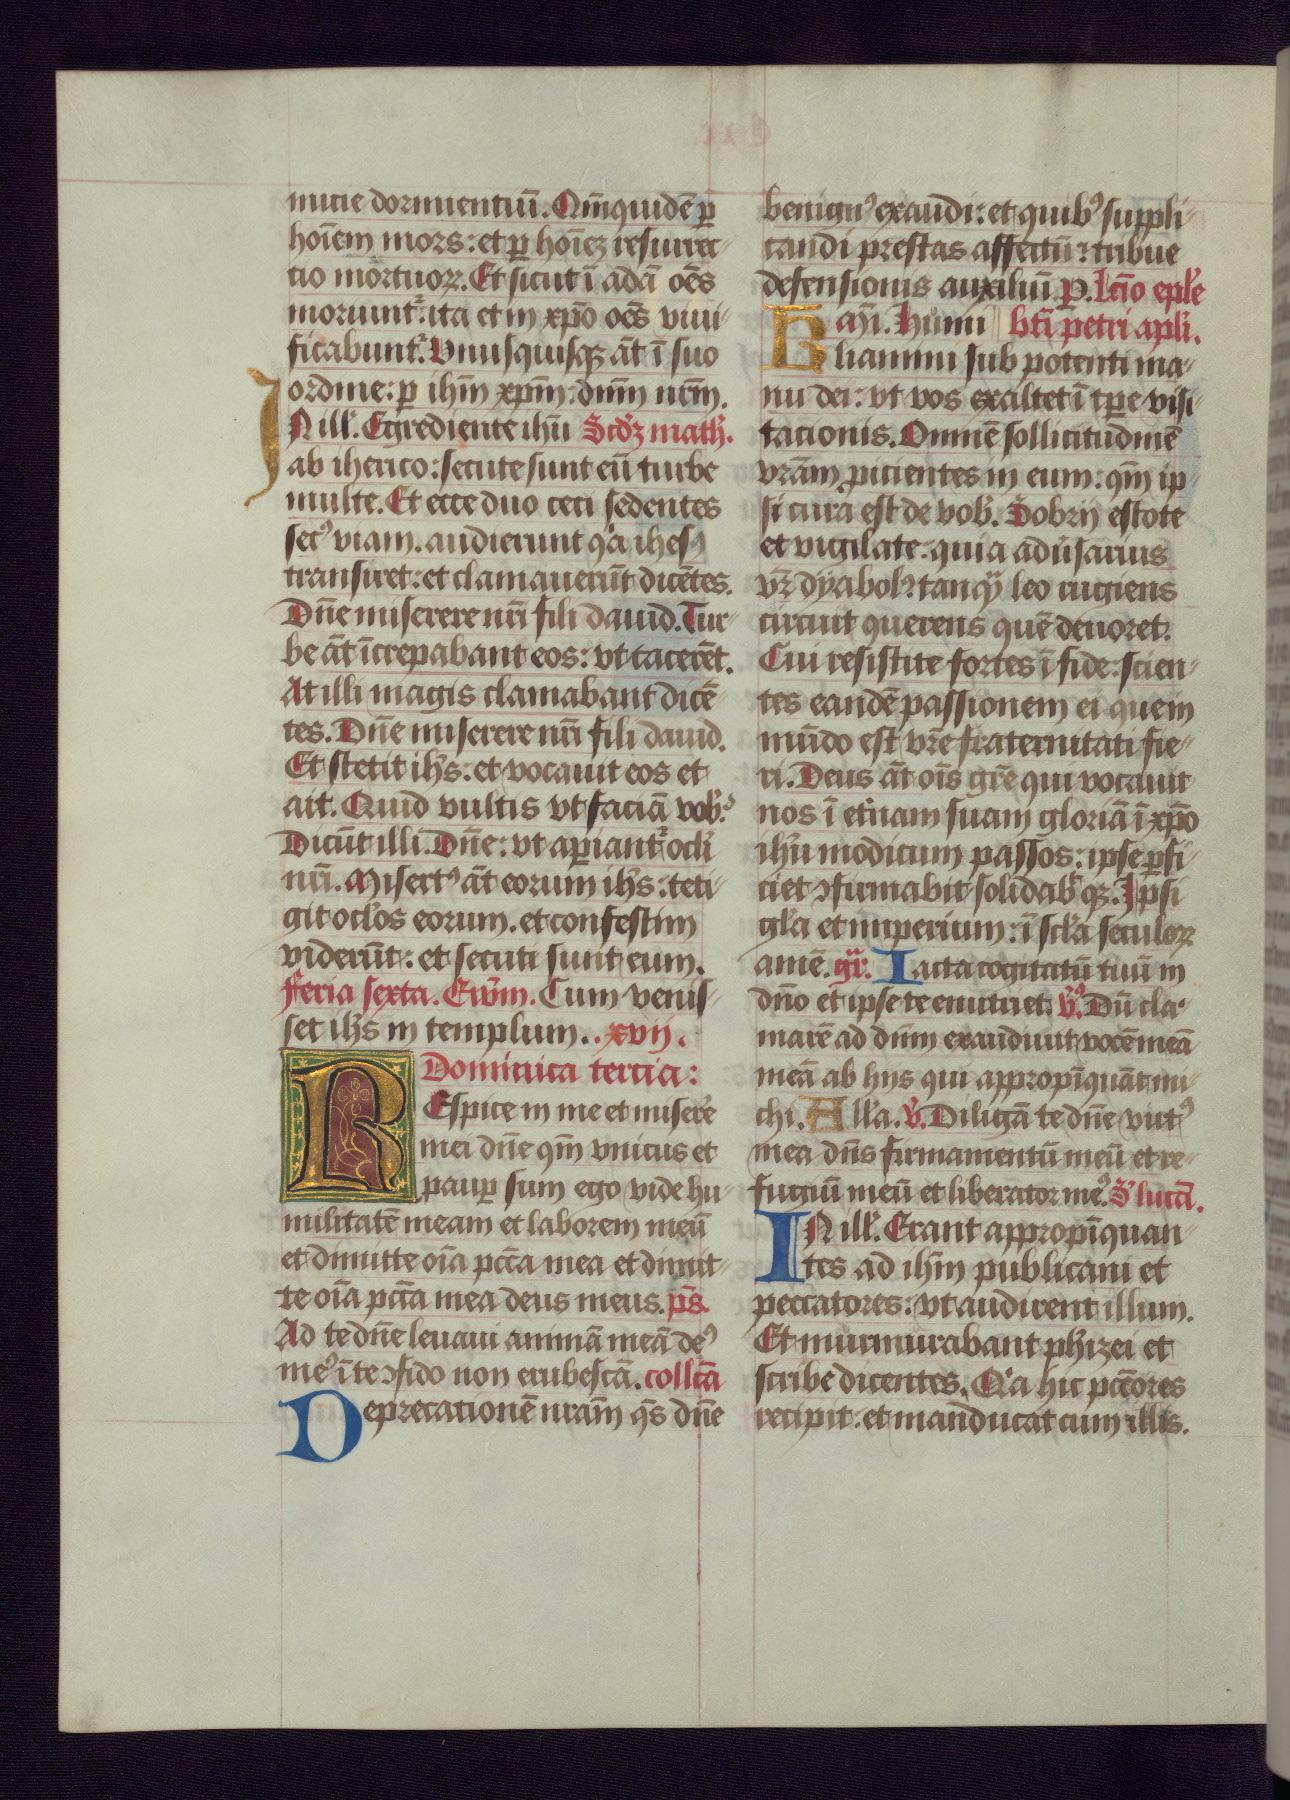 mitie dormientiū. Qm̄quidē p̲
hoīem mors: et p̲ hoīez resurrec-
tio mortuoꝝ. Et sicut ī adā oēs
moriunt᷑: ita et in xp̄o oēs viui-
ficabunt᷑. Vnusquisqꝫ āt ī suo
ordine: p̲ ihm̄ xpm̄: dnm̄ nrm̄.
IN ill'. Egrediente ihū Scd'ꝫ math'.
ab iherico: secute sunt eū turbe
multe. Et ecce duo ceci sedentes
secꝰ viam. audierunt qͣ ihesꝰ
transiret: et clamauerūt dicētes.
Dn̄e miserere nr̄i fili dauid. Tur-
be āt īcrepabant eos: vt tacerēt.
At illi magis clamabant dicē-
tes. Dn̄e miserere nr̄i fili dauid.
Et stetit ihs̄: et vocauit eos et
ait. Quid vultis vt faciā vob'?
Dicūt illi. Dn̄e: vt ap̲iant᷑ ocl'i
nr̄i. Misertꝰ āt eorum ihs̄: teti-
git ocl'os eorum. et confestim
viderūt: et secuti sunt eum.
feria sexta. Ewm̄. Cum venis-
set ihs̄ in templum. . xvij .
Dominica tercia:
REspice in me et miser'e
mei dn̄e qm̄ vnicus et
paup̲ sum ego vide hu-
militatē meam et laborem meū
et dimitte oīa pcc̄a mea et dimit-
te oīa pcc̄a mea deus meus. ps̄.
Ad te dn̄e leuaui animā meā deꝰ
meꝰ ī te ꝯfido non erubescā. collc̄a
Deprecationē nram̄ qs̄ dn̄e
benignꝰ exaudi: et quibꝰ suppli-
candi prestas affectū: tribue
defensionis auxiliū. P. Lc̄io epl'e
Kam̄i. Humi bt̄i petri apl'i.
liamini sub potenti ma-
nu dei: vt vos exaltet ī tp̲e visi-
tacionis. Omnē sollicitudinē
vram̄ p̲icientes in eum: qm̄ ip-
si cura est de vob'. Sobrij estote
et vigilate: quia adu'sarius
vꝫ dyabolꝰ tanqͣ leo rugiens
circuit querens quē deuoret.
Cui resistite fortes ī fide: scien-
tes eandē passionem ei quem
mūdo est vr̄e fraternitati fie-
ri. Deus āt oīs gr̄e qui vocauit
nos ī et'nam suam gloriā ī xp̄o
ihū modicum passos: ipse p̲fi-
ciet ꝯfirmabit solidab'qꝫ. Ipsi
gl'a et imperium: ī scl'a seculoꝝ
amē. gr̄. Iacta cogitatū tuū in
dn̄o et ipse te enutriet. V'. Dū cla-
marē ad dnm̄ exaudiuit vocē meā
meā ab hijs qui appropīquāt mi-
chi. All'a. v'. Diligā te dn̄e virtꝰ
mea dn̄s firmamentū meū et re-
fugiū meū et liberator meꝰ. S' lucā.
IN ill'. Erant appropīquan-
tes ad ihm̄ publicani et
peccatores: vt audirent illum.
Et murmurabant ph'izei et
scribe dicentes. Qͣ hic pcc̄ores
recipit: et manducat cum illis.